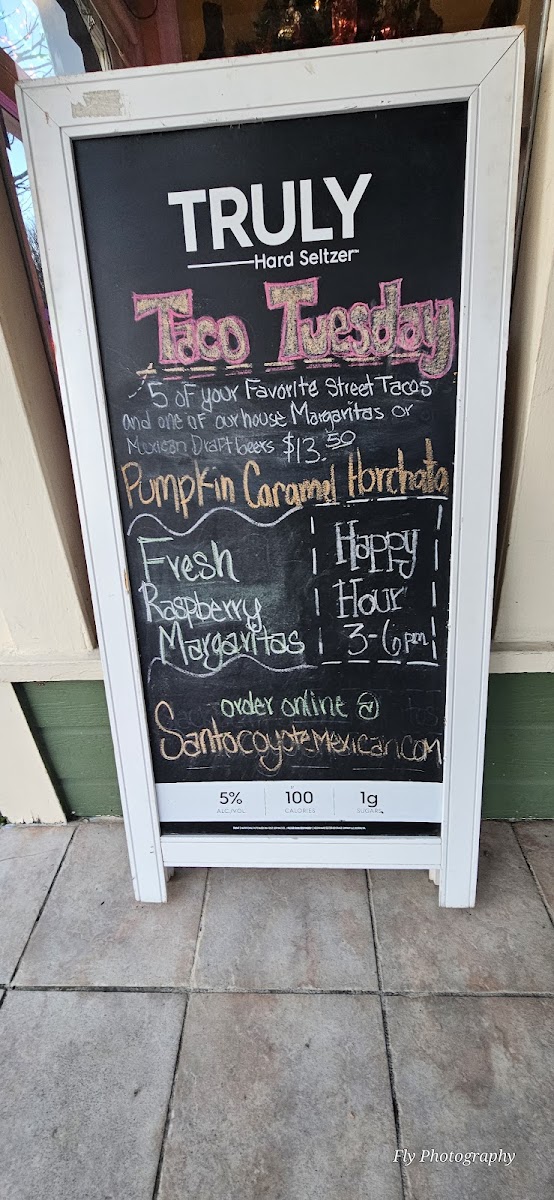 TRULY
Hard Seltzer
Taco Tuesday
5 of your Favorite Street Tacos
and one of our house Margaritas or
Mexican Draft Beers $13.50
Pumpkin Caramel Horchata
Fresh
Raspberry
Margaritas
Happy
Hour
3-6pm
order online @
Santocoyotemexican.com
5%
ALC/VOL
100
CALORIES
1g
SUGARS
Fly Photography